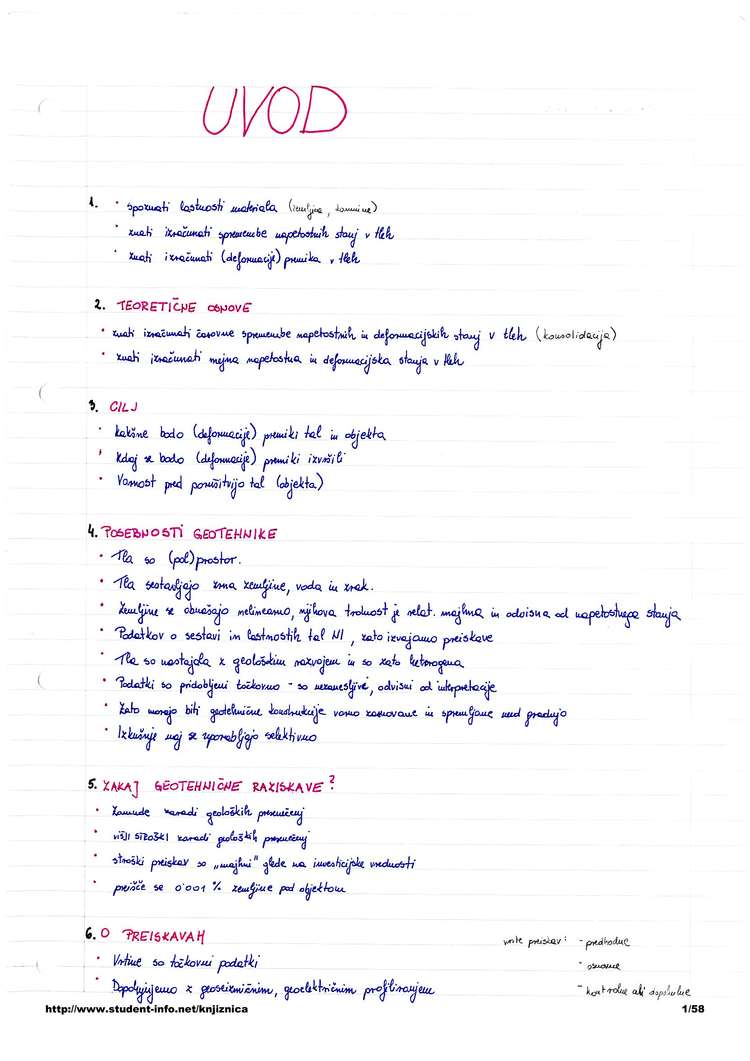 UVOD
1. • spoznati lastnosti materiala (zemljine, kamnine)
• znati izračunati spremembe napetostnih stanj v tleh
• znati izračunati (deformacije) premika v tleh
2. TEORETIČNE OSNOVE
• znati izračunati časovne spremembe napetostnih in deformacijskih stanj v tleh (konsolidacija)
• znati izračunati mejna napetostna in deformacijska stanja v tleh
3. CILJ
• kakšne bodo (deformacije) premiki tal in objekta
• kdaj se bodo (deformacije) premiki izvršili
• Varnost pred porušitvijo tal (objekta)
4. POSEBNOSTI GEOTEHNIKE
• Tla so (pol)prostor.
• Tla sestavljajo zrna zemljine, voda in zrak.
• Zemljine se obnašajo nelinearno, njihova trdnost je relat. majhna in odvisna od napetostnega stanja
• Podatkov o sestavi in lastnostih tal NI, zato izvajamo preiskave
• Tla so nastajala z geološkim razvojem in so zato heterogena
• Podatki so pridobljeni točkovno - so nezanesljivi, odvisni od interpretacije
• Zato morajo biti geotehnične konstrukcije varno zasnovane in spremljane med gradnjo
• Izkušnje naj se uporabljajo selektivno
5. ZAKAJ GEOTEHNIČNE RAZISKAVE?
• Zamude zaradi geoloških presenečenj
• višji stroški zaradi geoloških presenečenj
• stroški preiskav so „majhni" glede na investicijske vrednosti
• preišče se 0'001 % zemljine pod objektom
6. O PREISKAVAH
vrste preiskav: - predhodne
• Vrtine so točkovni podatki
- osnovne
• Dopolnjujemo z geoseizmičnim, geoelektričnim profiliranjem
- kontrolne ali dopolnilne
http://www.student-info.net/knjiznica
1/58